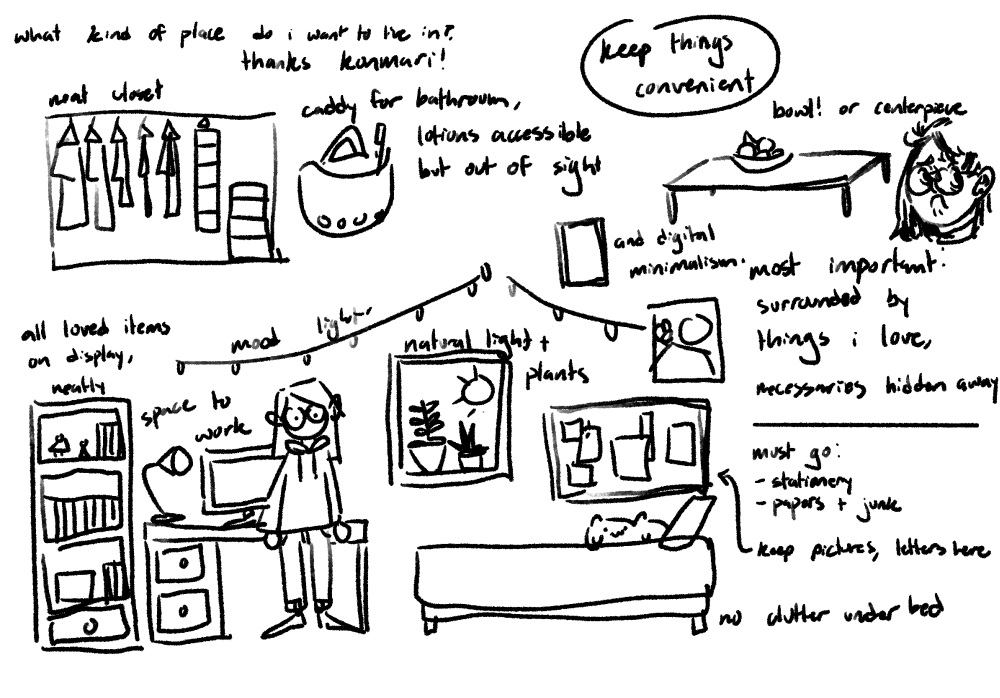 what kind of place do i want to live in?
thanks konmari!
keep things
convenient
neat closet
caddy for bathroom,
lotions accessible
but out of sight
bowl! or centerpiece
and digital
minimalism.
most important:
surrounded by
things i love,
necessaries hidden away
all loved items
on display,
neatly
mood lights
natural light +
plants
space to
work
must go:
- stationery
- papers + junk
keep pictures, letters here
no clutter under bed